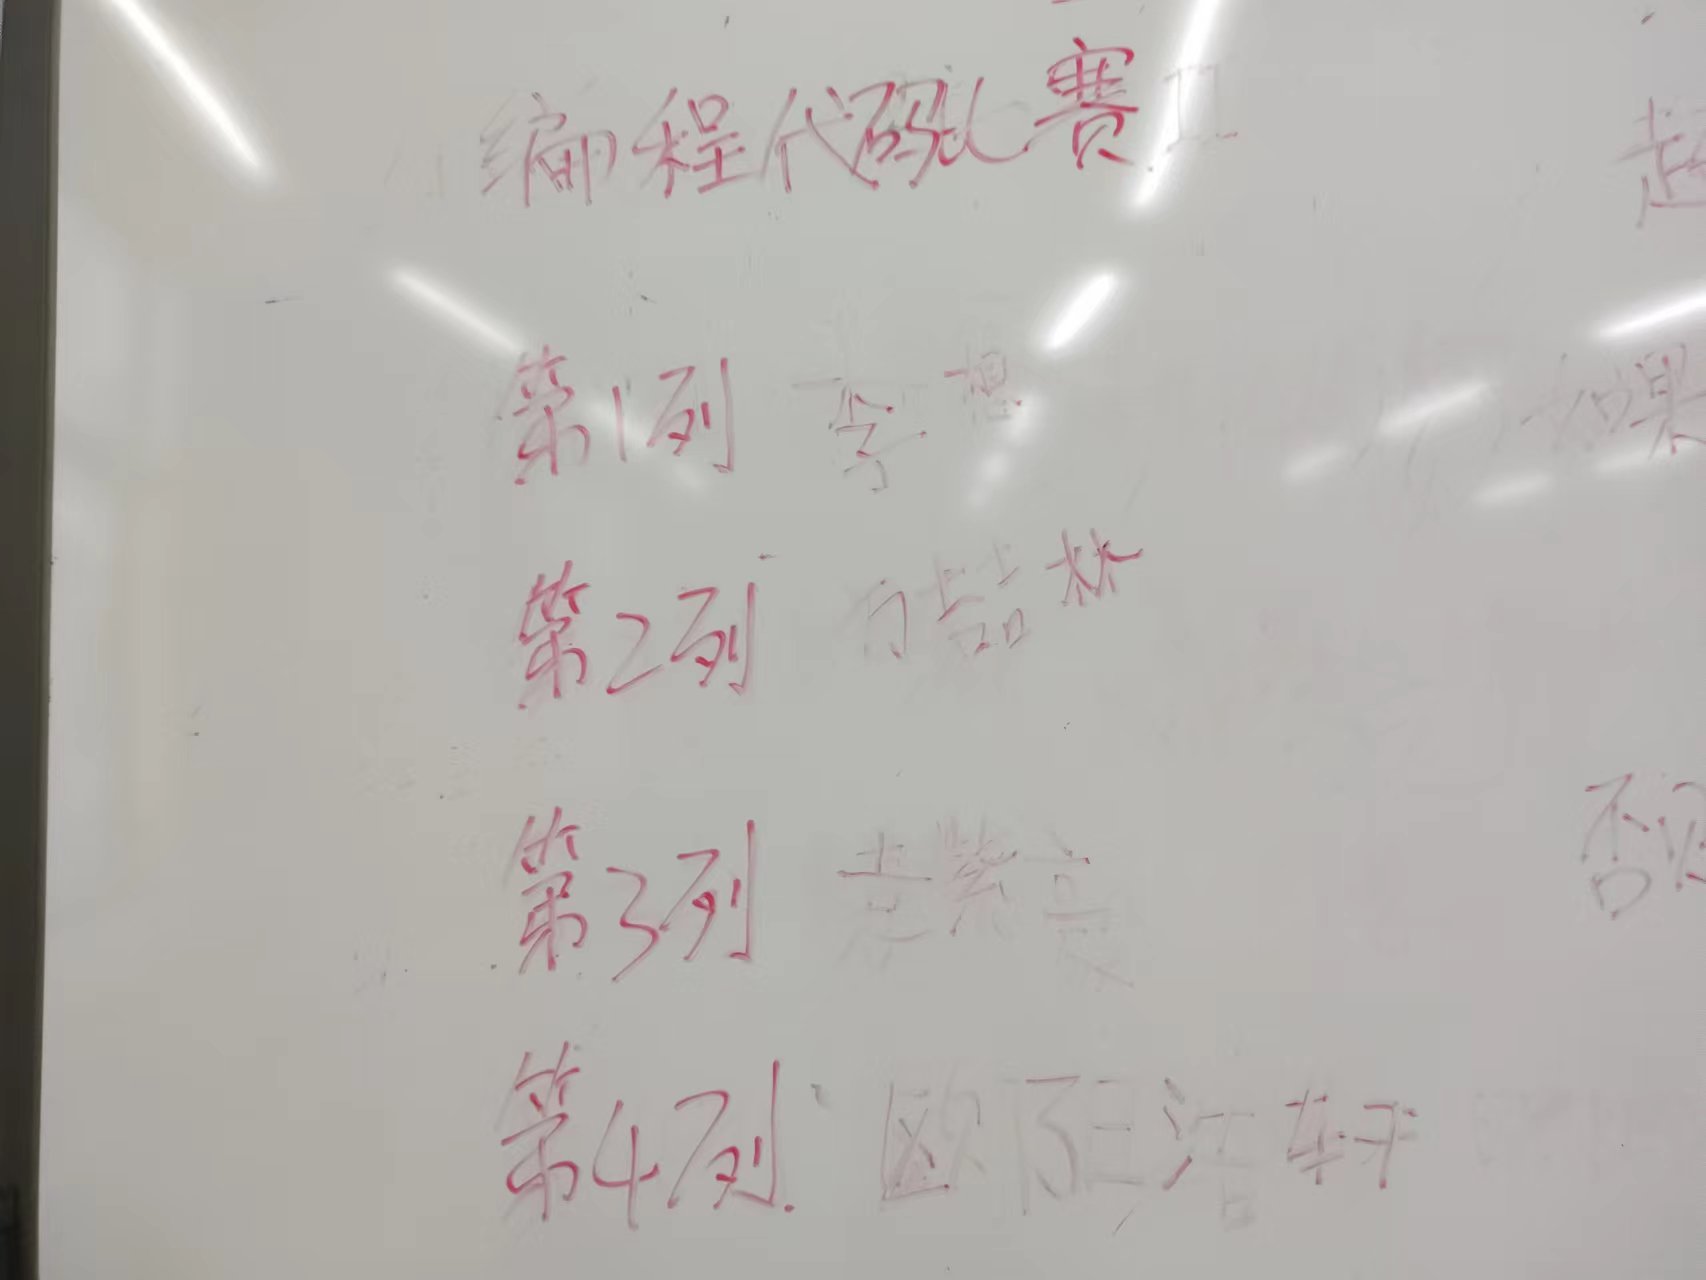 编程代码比赛 II
第1列 李想
如果
第2列 方喆林
第3列 黄紫
第4列 欧阳浩轩